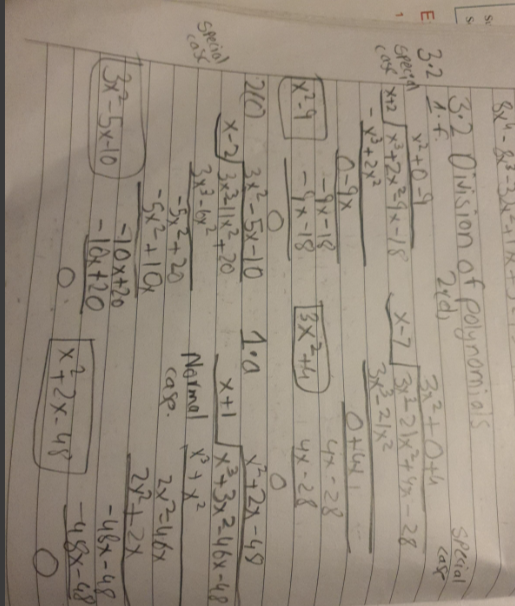 3.2
3.2 Division of polynomials
1.f.
special case
x²+0-9
x+2 √ x³+2x²-9x-18
- x³+2x²
0-9x
-9x-18
-9x-18
0
x²-9
2(d)
special case
3x²+0+4
x-7 √ 3x³-21x²+4x-28
3x³-21x²
0+4x
4x-28
4x-28
0
3x²+4
special case
3x²-5x-10
x-2 √ 3x³-11x²+20
3x³-6x²
-5x²+20
-5x²+10x
-10x+20
-10x+20
0
3x²-5x-10
1.0
Normal case.
x²+2x-48
x+1 √ x³+3x²-46x-48
x³+x²
2x²-46x
2x²+2x
-48x-48
-48x-48
0
x²+2x-48